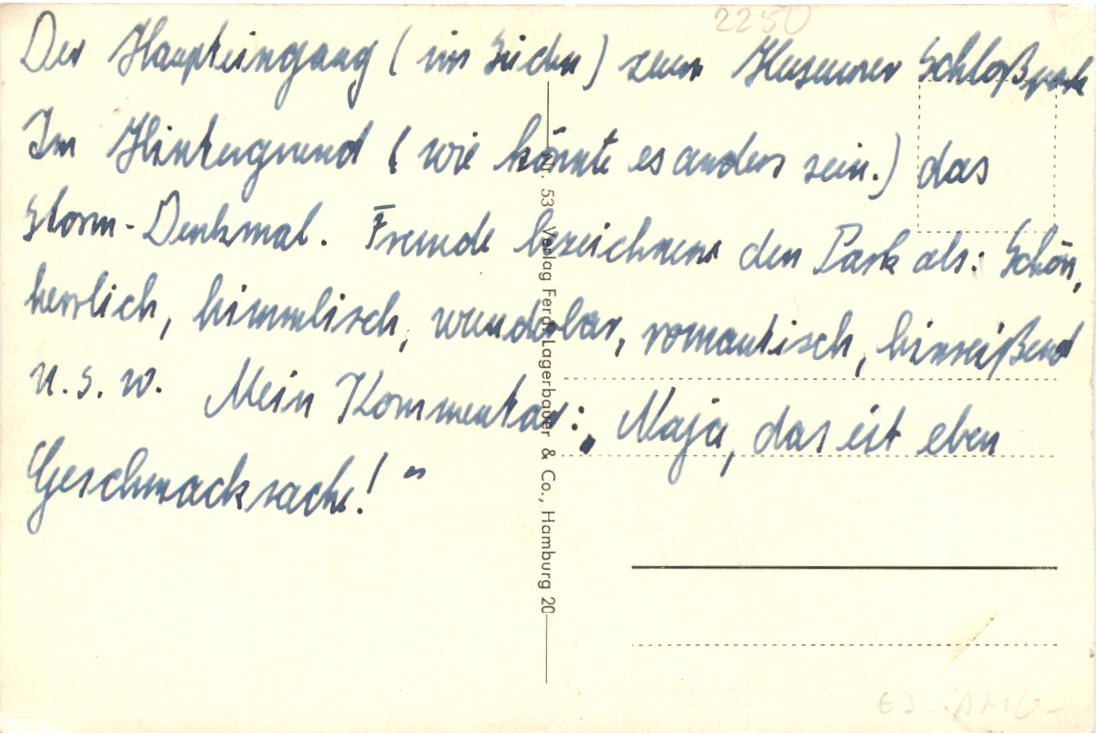 2250
Der Haupteingang (im Süden) zum Husumer Schloßpark
Im Hintergrund (wie könnte es anders sein.) das
Storm-Denkmal. Fremde bezeichnen den Park als: Schön,
herrlich, himmlisch, wunderbar, romantisch, hinreißend
u.s.w. Mein Kommentar: „Naja, das ist eben
Geschmacksache!“
53 Verlag Ferd. Lagerbauer & Co., Hamburg 20